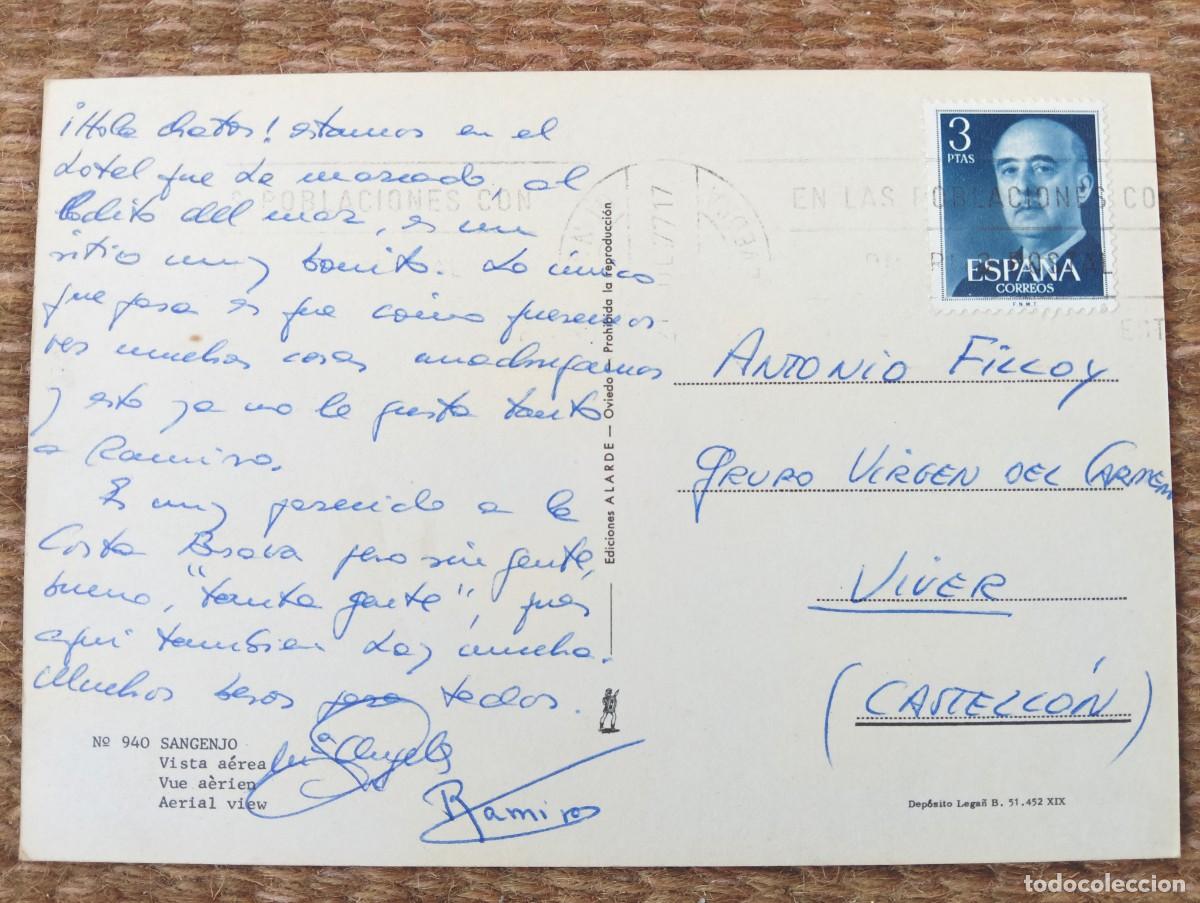 ¡Hola chatos! estamos en el
hotel que he marcado, al
ladito del mar, es un
sitio muy bonito. Lo único
que pasa es que como queremos
ver muchas cosas madrugamos
y esto ya no le gusta tanto
a Ramiro.
Es muy parecido a la
Costa Brava pero sin gente,
bueno, "tanta gente", pues
aquí tambien hay mucha.
Muchos besos para todos.
Mª Angeles
Ramiro
Nº 940 SANGENJO
Vista aérea
Vue aèrien
Aerial view
Ediciones ALARDE — Oviedo — Prohibida la reproducción
POBLACIONES CON
77 17
EN LAS POBLACIONES CO
3
PTAS
ESPAÑA
CORREOS
F.N.M.T
ANTONIO FILLOY
GRUPO VIRGEN DEL CARMEN
VIVER
(CASTELLÓN)
Depósito Legañ B. 51.452 XIX
todocoleccion